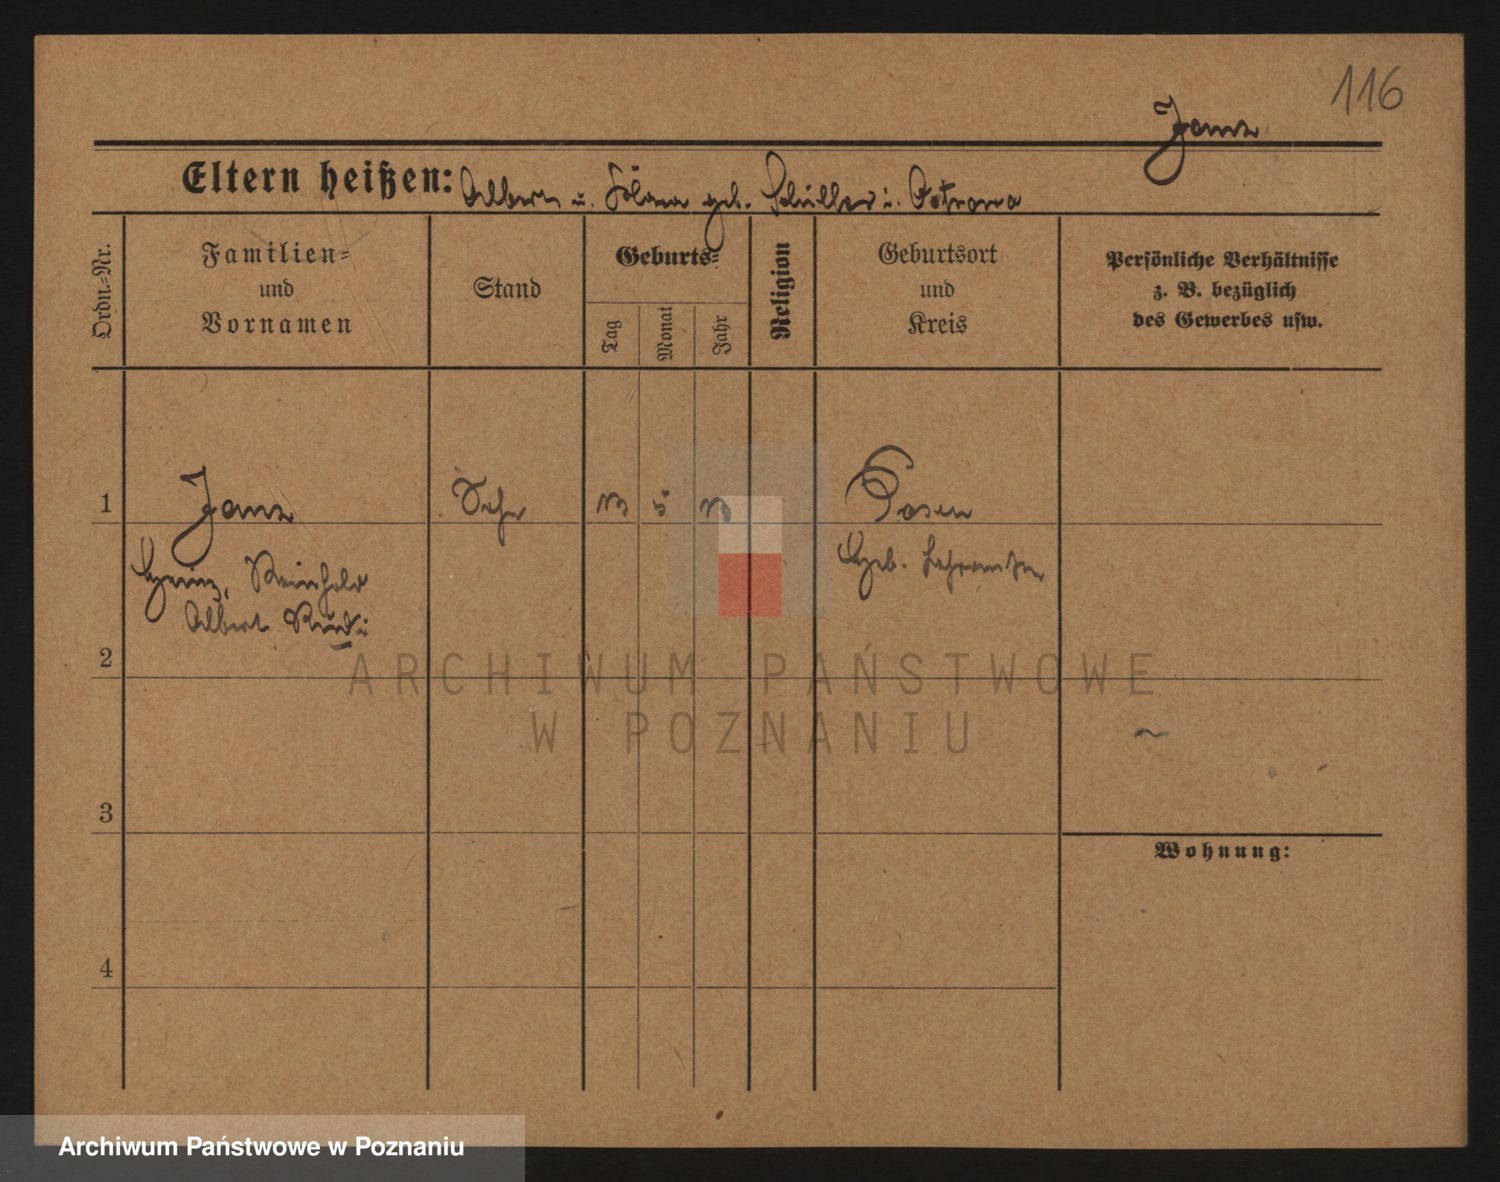 116
Janz
Eltern heißen: Albert u. geb. Schüller i. Ostrowo
Ordn.=Nr.
Familien=
und
Vornamen
Stand
Geburts=
Tag
Monat
Jahr
Religion
Geburtsort
und
Kreis
Persönliche Verhältnisse
z. B. bezüglich
des Gewerbes usw.
1
Janz
13 5 13
Posen
Heinz, Reinhold
Albert Rudi
2
3
4
Wohnung:
ARCHIWUM PAŃSTWOWE
W POZNANIU
Archiwum Państwowe w Poznaniu